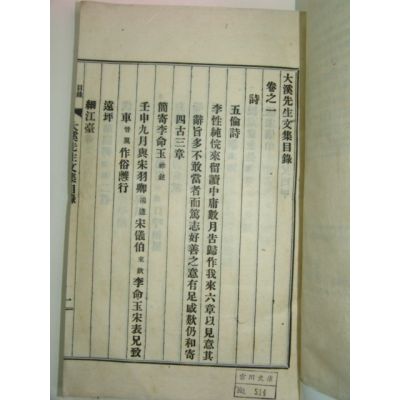 大溪先生文集目錄
卷之一
詩
五倫詩
李性純悅來留讀中庸數月告歸作我來六章以見意其
辭旨多不敢當者而篤志好善之意有足感歎仍和寄
四古三章
簡寄李命玉
壬申九月與宋羽卿 宋儀伯 李命玉宋表兄致
車 作俗離行
遠坪
細江臺
目錄
大溪先生文集目錄
一
No. 514